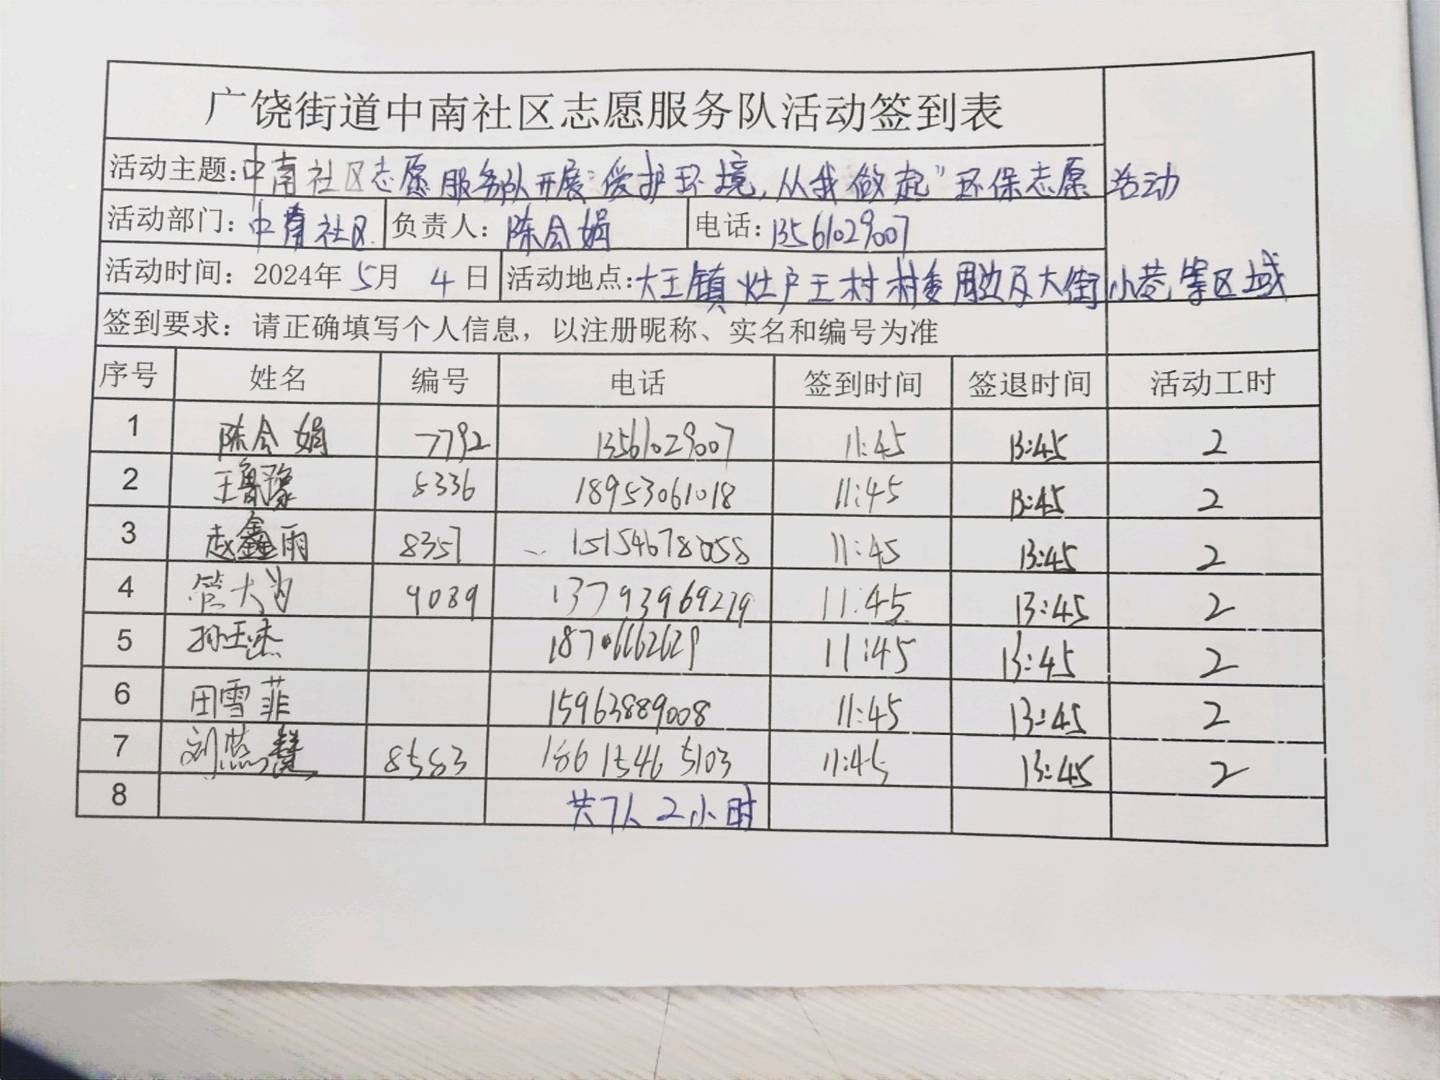 广饶街道中南社区志愿服务队活动签到表
活动主题:中南社区志愿服务队开展“爱护环境,从我做起”环保志愿活动
活动部门:中南社区 负责人:陈会娟 电话:13561029007
活动时间:2024年5月4日 活动地点:大王镇灶户王村村委周边及大街小巷等区域
签到要求:请正确填写个人信息,以注册昵称、实名和编号为准
序号 姓名 编号 电话 签到时间 签退时间 活动工时
1 陈会娟 7792 13561029007 11:45 13:45 2
2 王 8336 18953061018 11:45 13:45 2
3 赵鑫雨 8357 15154678058 11:45 13:45 2
4 管大为 9089 13793969279 11:45 13:45 2
5 孙玉杰 18706662629 11:45 13:45 2
6 田雪菲 15963889008 11:45 13:45 2
7 刘燕 8583 18615465103 11:45 13:45 2
8 共7人2小时